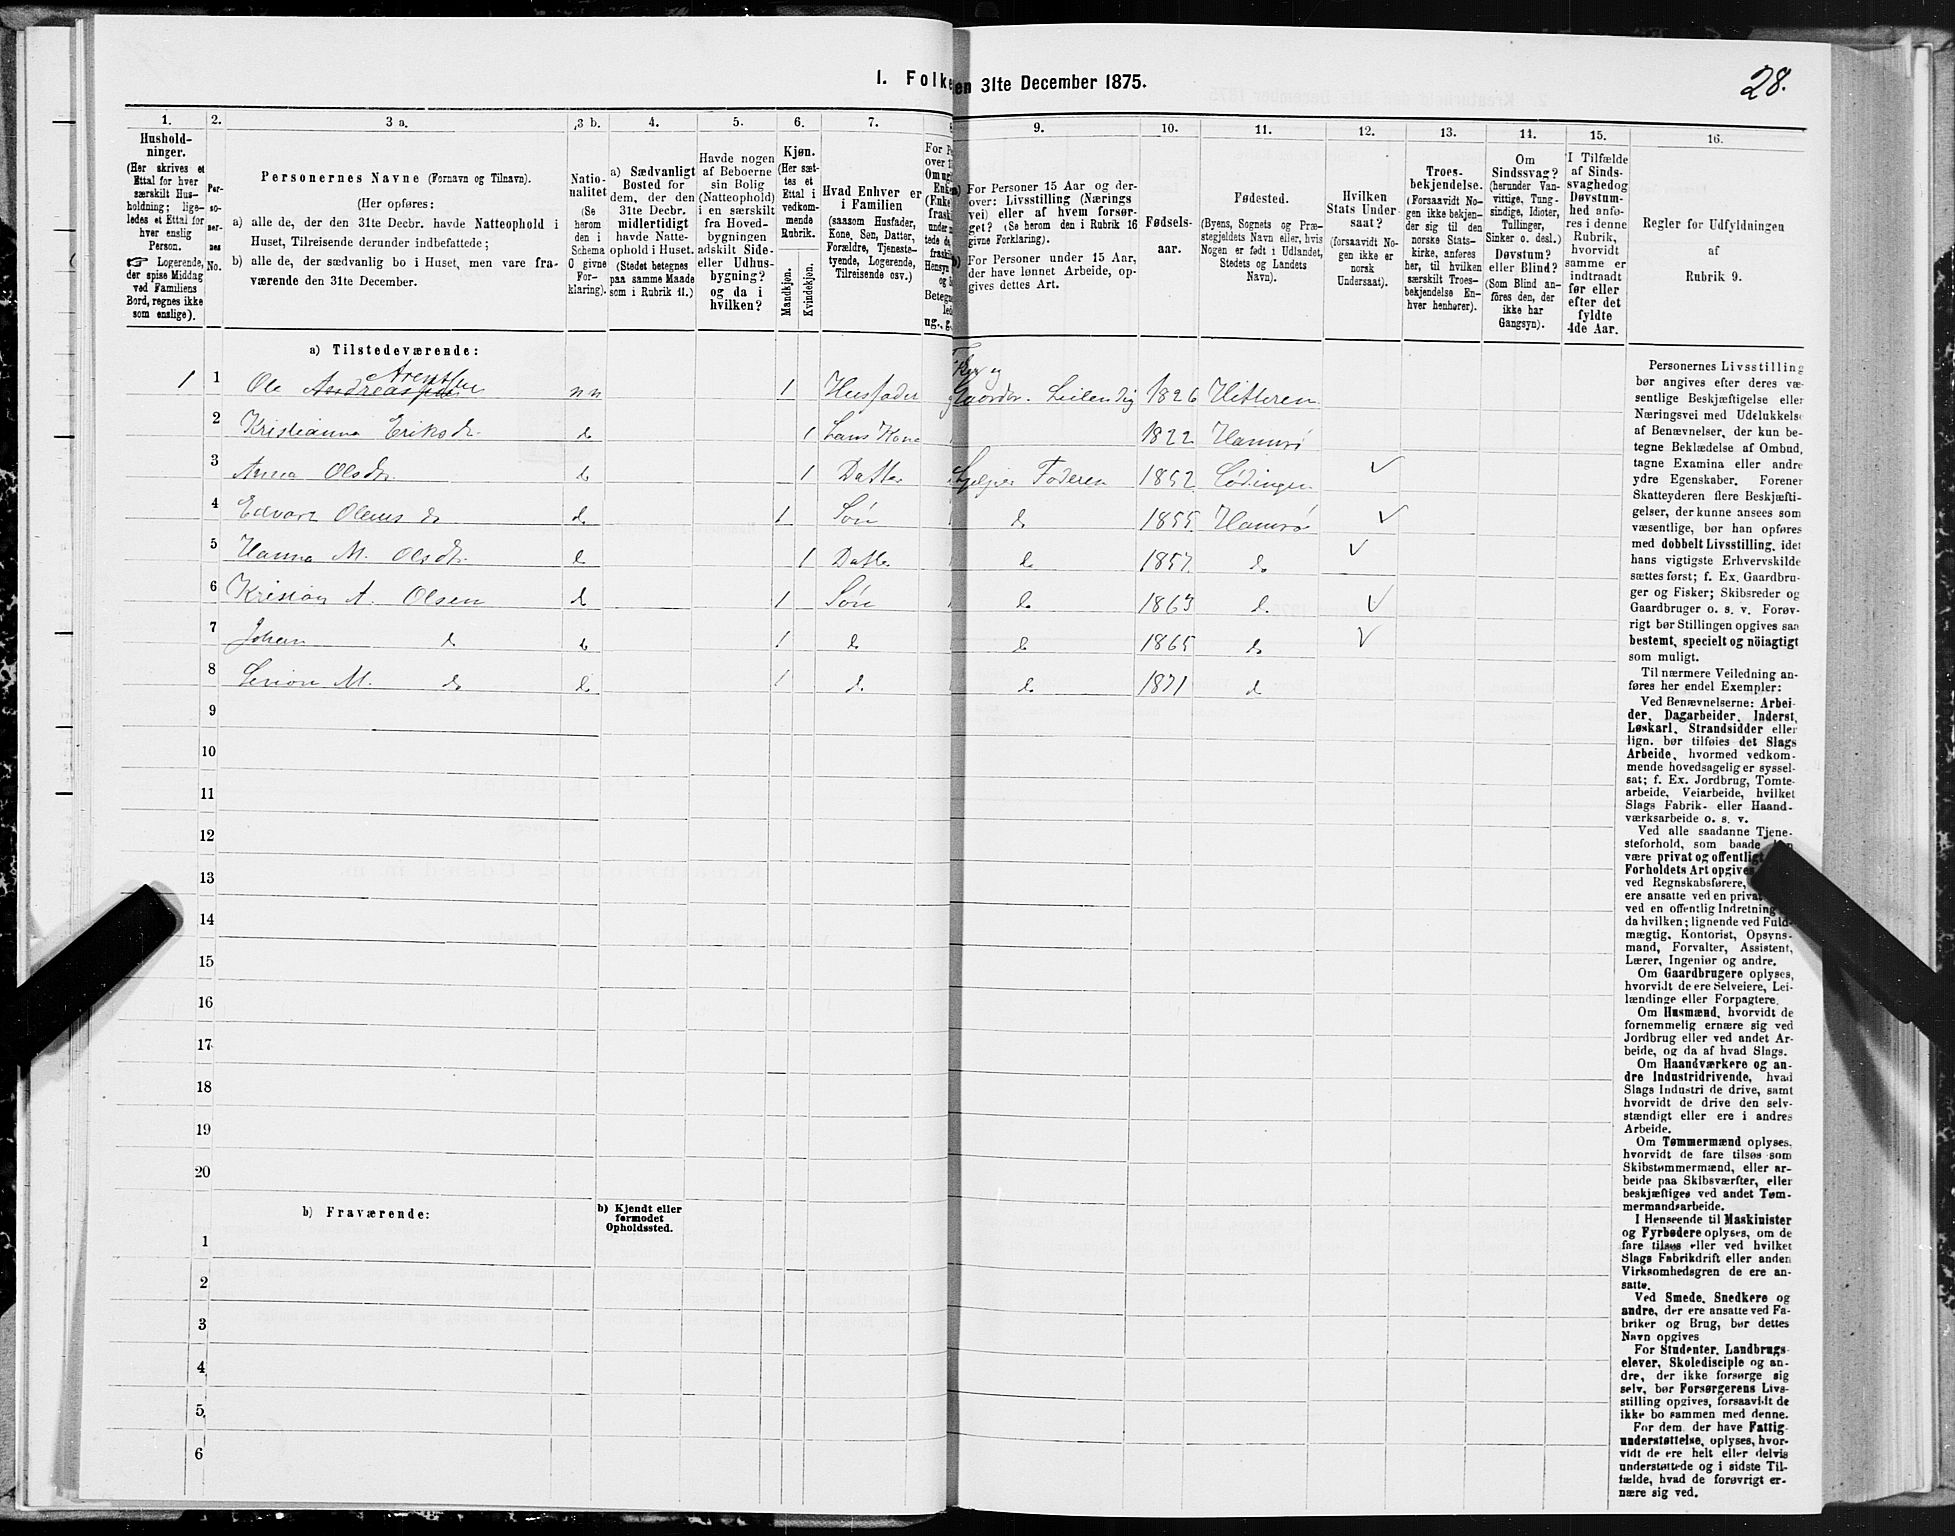 I. Folke
en 31te December 1875.
28.
1.
2.
3 a.
3 b.
4.
5.
6.
7.
9.
10.
11.
12.
13.
14.
15.
16.
Hushold-
ninger.
(Her skrives et
Ettal for hver
særskilt Hus-
holdning; lige-
ledes et Ettal for
hver enslig
Person.
☞ Logerende,
der spise Middag
ved Familiens
Bord, regnes ikke
som enslige).
Per-
so-
ner-
nes
No.
Personernes Navne (Fornavn og Tilnavn).
(Her opføres:
a) alle de, der den 31te Decbr. havde Natteophold i
Huset, Tilreisende derunder indbefattede;
b) alle de, der sædvanlig bo i Huset, men vare fra-
værende den 31te December.
Natio-
nalitet
(Se
herom
den i
Schema
O givne
For-
klaring).
a) Sædvanligt
Bosted for
dem, der den
31te Decbr.
midlertidigt
havde Natte-
ophold i Huset.
(Stedet betegnes
paa samme Maade
som i Rubrik 11.)
Havde nogen
af Beboerne
sin Bolig
(Natteophold)
i en særskilt
fra Hoved-
bygningen
adskilt Side-
eller Udhus-
bygning?
og da i
hvilken?
Kjøn.
(Her sæt-
tes et
Ettal i
vedkom-
mende
Rubrik.
Mandkjøn.
Kvindekjøn.
Hvad Enhver er
i Familien
(saasom Husfader,
Kone, Søn, Datter,
Forældre, Tjeneste-
tyende, Logerende,
Tilreisende osv.)
a) For Personer 15 Aar og der-
over: Livsstilling (Nærings
vei) eller af hvem forsør-
get? (Se herom den i Rubrik 16
givne Forklaring).
b) For Personer under 15 Aar,
der have lønnet Arbeide, op-
gives dettes Art.
Fødsels-
aar.
Fødested.
(Byens, Sognets og Præ-
stegjeldets Navn eller, hvis
Nogen er født i Udlandet,
Stedets og Landets
Navn).
Hvilken
Stats Under-
saat?
(forsaavidt No-
gen ikke er
norsk
Undersaat).
Troes-
bekjendelse.
(Forsaavidt No-
gen ikke bekjen-
der sig til den
norske Stats-
kirke, anføres
her, til hvilken
særskilt Troes-
bekjendelse En-
hver henhører).
Om
Sindssvag?
(herunder Van-
vittige, Tung-
sindige, Idioter,
Tullinger,
Sinker o. desl.)
Døvstum?
eller Blind?
(Som Blind an-
føres den, der
ikke har
Gangsyn).
I Tilfælde
af Sinds-
svaghed og
Døvstum-
hed anfø-
res i denne
Rubrik,
hvorvidt
samme er
indtraadt
før eller
efter det
fyldte
4de Aar.
Regler for Udfyldningen
af
Rubrik 9.
a) Tilstedeværende:
1 1 Ole Andreassen Arentsen nn 1 Husfader Gaardbr. Leilendig 1826 Hitteren
2 Kristianna Eriksdr. do 1 hans Kone 1822 Hamrø
3 Anna Olsdr. do 1 Datter hjelper Faderen 1852 Lødingen ✓
4 Edvart Olaus do do 1 Søn do 1855 Hamrø ✓
5 Hanna M. Olsdr. do 1 Datter do 1857 do ✓
6 Kristian A. Olsen do 1 Søn do 1863 do ✓
7 Johan do do 1 do do 1865 do ✓
8 M. do do 1 do do 1871 do
9
10
11
12
13
14
15
16
17
18
19
20
b) Fraværende:
b) Kjendt eller
formodet
Opholdssted.
1
2
3
4
5
6
Personernes Livsstilling
bør angives efter deres væ-
sentlige Beskjæftigelse eller
Næringsvei med Udelukkelse
af Benævnelser, der kun be-
tegne Beklædelse af Ombud,
tagne Examina eller andre
ydre Egenskaber. Forener
Skatteyderen flere Beskjæfti-
gelser, der kunne ansees som
væsentlige, bør han opføres
med dobbelt Livsstilling, idet
hans vigtigste Erhvervskilde
sættes først; f. Ex. Gaardbru-
ger og Fisker; Skibsreder og
Gaardbruger o. s. v. Forøv-
rigt bør Stillingen opgives saa
bestemt, specielt og nöiagtigt
som muligt.
Til nærmere Veiledning an-
føres her endel Exempler:
Ved Benævnelserne: Arbei-
der, Dagarbeider, Inderst,
Løskarl, Strandsidder eller
lign. bør tilføies det Slags
Arbeide, hvormed vedkom-
mende hovedsagelig er syssel-
sat; f. Ex. Jordbrug, Tomte-
arbeide, Veiarbeide, hvilket
Slags Fabrik- eller Haand-
værksarbeide o. s. v.
Ved alle saadanne Tjene-
steforhold, som baade
være privat og offentligt
Forholdets Art opgives
ved Regnskabsførere,
ere ansatte ved en privat
ved en offentlig Indretning
da hvilken; lignende ved Fuld-
mægtig, Kontorist, Opsyns-
mand, Forvalter, Assistent,
Lærer, Ingeniør og andre.
Om Gaardbrugere oplyses,
hvorvidt de ere Selveiere, Lei-
lændinge eller Forpagtere.
Om Husmænd, hvorvidt de
fornemmelig ernære sig ved
Jordbrug eller ved andet Ar-
beide, og da af hvad Slags.
Om Haandværkere og an-
dre Industridrivende, hvad
Slags Industri de drive, samt
hvorvidt de drive den selv-
stændigt eller ere i andres
Arbeide.
Om Tømmermænd oplyses,
hvorvidt de fare tilsøs som
Skibstømmermænd, eller ar-
beide paa Skibsværfter, eller
beskjæftiges ved andet Tøm-
mermandsarbeide.
I Henseende til Maskinister
og Fyrbødere oplyses, om de
fare tilsøs eller ved hvilket
Slags Fabrikdrift eller anden
Virksomhedsgren de ere an-
satte.
Ved Smede, Snedkere og
andre, der ere ansatte ved Fa-
briker og Brug, bør dettes
Navn opgives
For Studenter, Landbrugs-
elever, Skoledisciple og an-
dre, der ikke forsørge sig
selv, bør Forsørgerens Livs-
stilling opgives, forsaavidt de
ikke bo sammen med denne.
For dem, der have Fattig-
understøttelse, oplyses, hvor-
vidt de ere helt eller delvis
understøttede og i sidste Til-
fælde, hvad de forøvrigt er-
nære sig ved.